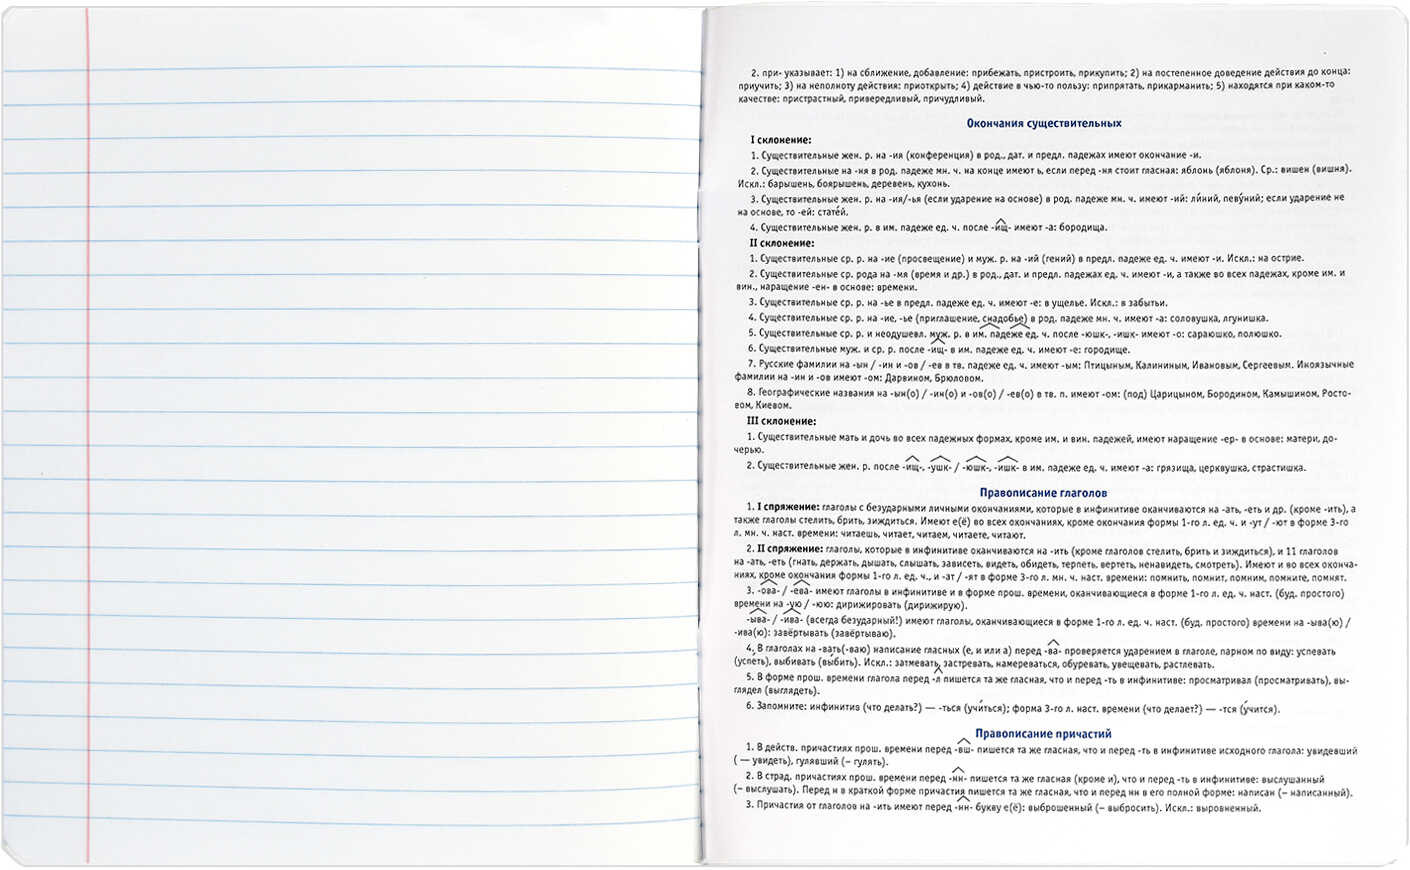 2. при- указывает: 1) на сближение, добавление: прибежать, пристроить, прикупить; 2) на постепенное доведение действия до конца:
приучить; 3) на неполноту действия: приоткрыть; 4) действие в чью-то пользу: припрятать, прикарманить; 5) находятся при каком-то
качестве: пристрастный, привередливый, причудливый.
Окончания существительных
I склонение:
1. Существительные жен. р. на -ия (конференция) в род., дат. и предл. падежах имеют окончание -и.
2. Существительные на -ня в род. падеже мн. ч. на конце имеют ь, если перед -ня стоит гласная: яблонь (яблоня). Ср.: вишен (вишня).
Искл.: барышень, боярышень, деревень, кухонь.
3. Существительные жен. р. на -ия/-ья (если ударение на основе) в род. падеже мн. ч. имеют -ий: ли́ний, певу́ний; если ударение не
на основе, то -ей: стате́й.
4. Существительные жен. р. в им. падеже ед. ч. после -ищ- имеют -а: бородища.
II склонение:
1. Существительные ср. р. на -ие (просвещение) и муж. р. на -ий (гений) в предл. падеже ед. ч. имеют -и. Искл.: на острие.
2. Существительные ср. рода на -мя (время и др.) в род., дат. и предл. падежах ед. ч. имеют -и, а также во всех падежах, кроме им. и
вин., наращение -ен- в основе: времени.
3. Существительные ср. р. на -ье в предл. падеже ед. ч. имеют -е: в ущелье. Искл.: в забытьи.
4. Существительные ср. р. на -ие, -ье (приглашение, снадобье) в род. падеже мн. ч. имеют -а: соловушка, лгунишка.
5. Существительные ср. р. и неодушевл. муж. р. в им. падеже ед. ч. после -юшк-, -ишк- имеют -о: сараюшко, полюшко.
6. Существительные муж. и ср. р. после -ищ- в им. падеже ед. ч. имеют -е: городище.
7. Русские фамилии на -ын / -ин и -ов / -ев в тв. падеже ед. ч. имеют -ым: Птицыным, Калининым, Ивановым, Сергеевым. Иноязычные
фамилии на -ин и -ов имеют -ом: Дарвином, Брюловом.
8. Географические названия на -ын(о) / -ин(о) и -ов(о) / -ев(о) в тв. п. имеют -ом: (под) Царицыном, Бородином, Камышином, Росто-
вом, Киевом.
III склонение:
1. Существительные мать и дочь во всех падежных формах, кроме им. и вин. падежей, имеют наращение -ер- в основе: матери, до-
черью.
2. Существительные жен. р. после -ищ-, -ушк- / -юшк-, -ишк- в им. падеже ед. ч. имеют -а: грязища, церквушка, страстишка.
Правописание глаголов
1. I спряжение: глаголы с безударными личными окончаниями, которые в инфинитиве оканчиваются на -ать, -еть и др. (кроме -ить), а
также глаголы стелить, брить, зиждиться. Имеют е(ё) во всех окончаниях, кроме окончания формы 1-го л. ед. ч. и -ут / -ют в форме 3-го
л. мн. ч. наст. времени: читаешь, читает, читаем, читаете, читают.
2. II спряжение: глаголы, которые в инфинитиве оканчиваются на -ить (кроме глаголов стелить, брить и зиждиться), и 11 глаголов
на -ать, -еть (гнать, держать, дышать, слышать, зависеть, видеть, обидеть, терпеть, вертеть, ненавидеть, смотреть). Имеют и во всех оконча-
ниях, кроме окончания формы 1-го л. ед. ч., и -ат / -ят в форме 3-го л. мн. ч. наст. времени: помнить, помнит, помним, помните, помнят.
3. -ова- / -ева- имеют глаголы в инфинитиве и в форме прош. времени, оканчивающиеся в форме 1-го л. ед. ч. наст. (буд. простого)
времени на -ую / -юю: дирижировать (дирижирую).
-ыва- / -ива- (всегда безударный!) имеют глаголы, оканчивающиеся в форме 1-го л. ед. ч. наст. (буд. простого) времени на -ыва(ю) /
-ива(ю): завёртывать (завёртываю).
4. В глаголах на -вать(-ваю) написание гласных (е, и или а) перед -ва- проверяется ударением в глаголе, парном по виду: успевать
(успе́ть), выбивать (вы́бить). Искл.: затмевать, застревать, намереваться, обуревать, увещевать, растлевать.
5. В форме прош. времени глагола перед -л пишется та же гласная, что и перед -ть в инфинитиве: просматривал (просматривать), вы-
глядел (выглядеть).
6. Запомните: инфинитив (что делать?) — -ться (учи́ться); форма 3-го л. наст. времени (что делает?) — -тся (у́чится).
Правописание причастий
1. В действ. причастиях прош. времени перед -вш- пишется та же гласная, что и перед -ть в инфинитиве исходного глагола: увидевший
( — увидеть), гулявший (– гулять).
2. В страд. причастиях прош. времени перед -нн- пишется та же гласная (кроме и), что и перед -ть в инфинитиве: выслушанный
(– выслушать). Перед н в краткой форме причастия пишется та же гласная, что и перед нн в его полной форме: написан (– написанный).
3. Причастия от глаголов на -ить имеют перед -нн- букву е(ё): выброшенный (– выбросить). Искл.: выровненный.